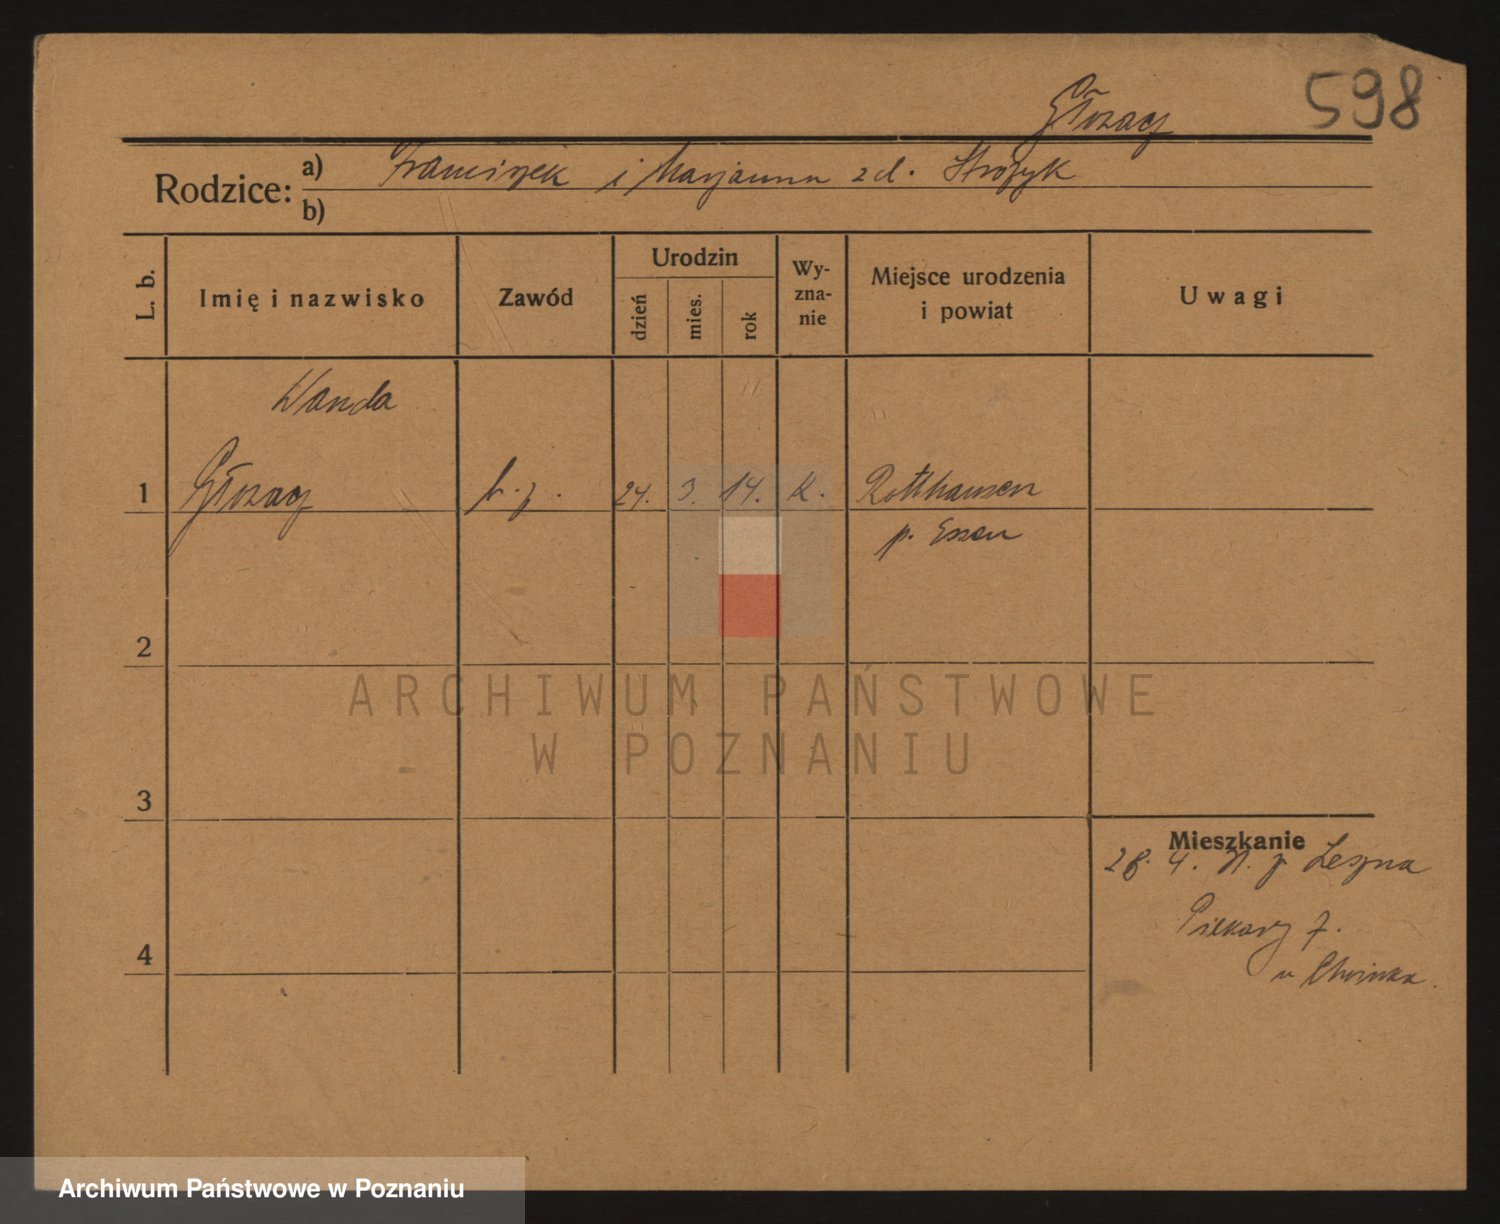 598
Rodzice: a) Franciszek i Marjanna zd. Stróżyk
b)
L. b.
Imię i nazwisko
Zawód
Urodzin
dzień
mies.
rok
Wy-
zna-
nie
Miejsce urodzenia
i powiat
Uwagi
Wanda
1
b. z. 24. 3. 14. k. Rotthausen
p. Essen
2
ARCHIWUM PAŃSTWOWE
W POZNANIU
3
Mieszkanie
28. 4. z Leszna
Piekary 7.
u
4
Archiwum Państwowe w Poznaniu